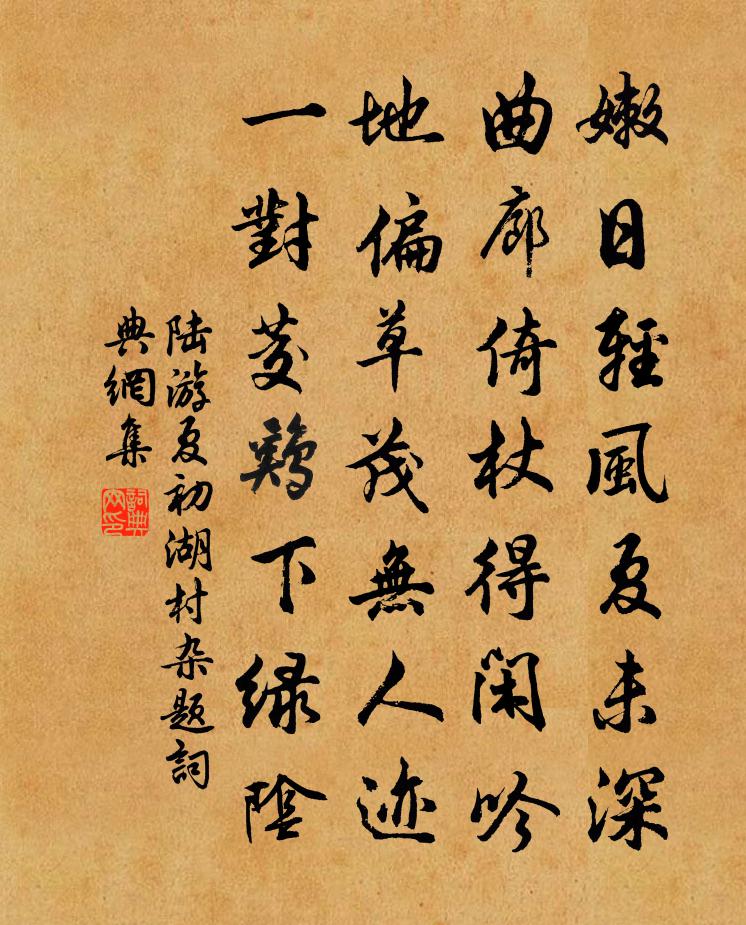 嫩日輕風夏未深
曲廊倚杖得閑吟
地偏草茂無人迹
一對茭鷄下緑陰
陸游夏初湖村杂題詞
典網集
詞典
网印